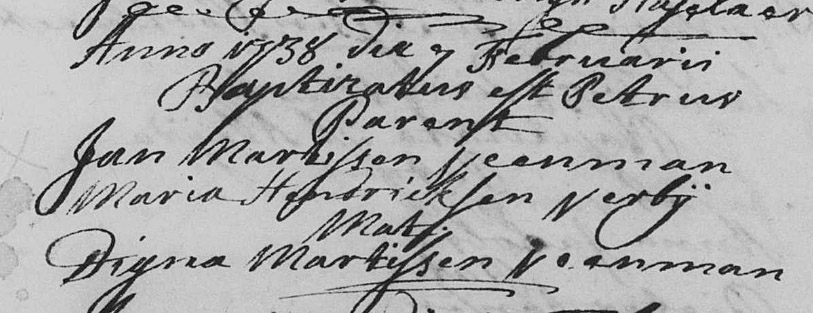 Haselaer
Anno 1738 die 7 Februarii
Baptizatus est Petrus
Parent
Jan Martissen Veenman
Maria Hendricksen Verbij
Mat.
Digna Martissen Veenman